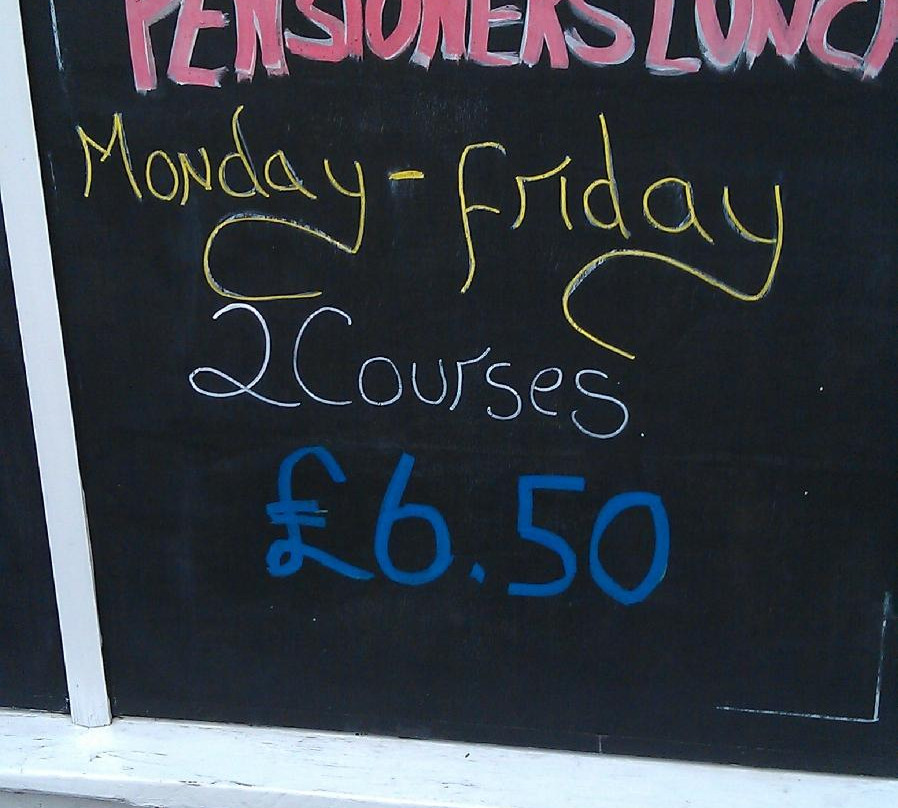 PENSIONERS LUNCH
Monday - friday
2 Courses
£6.50